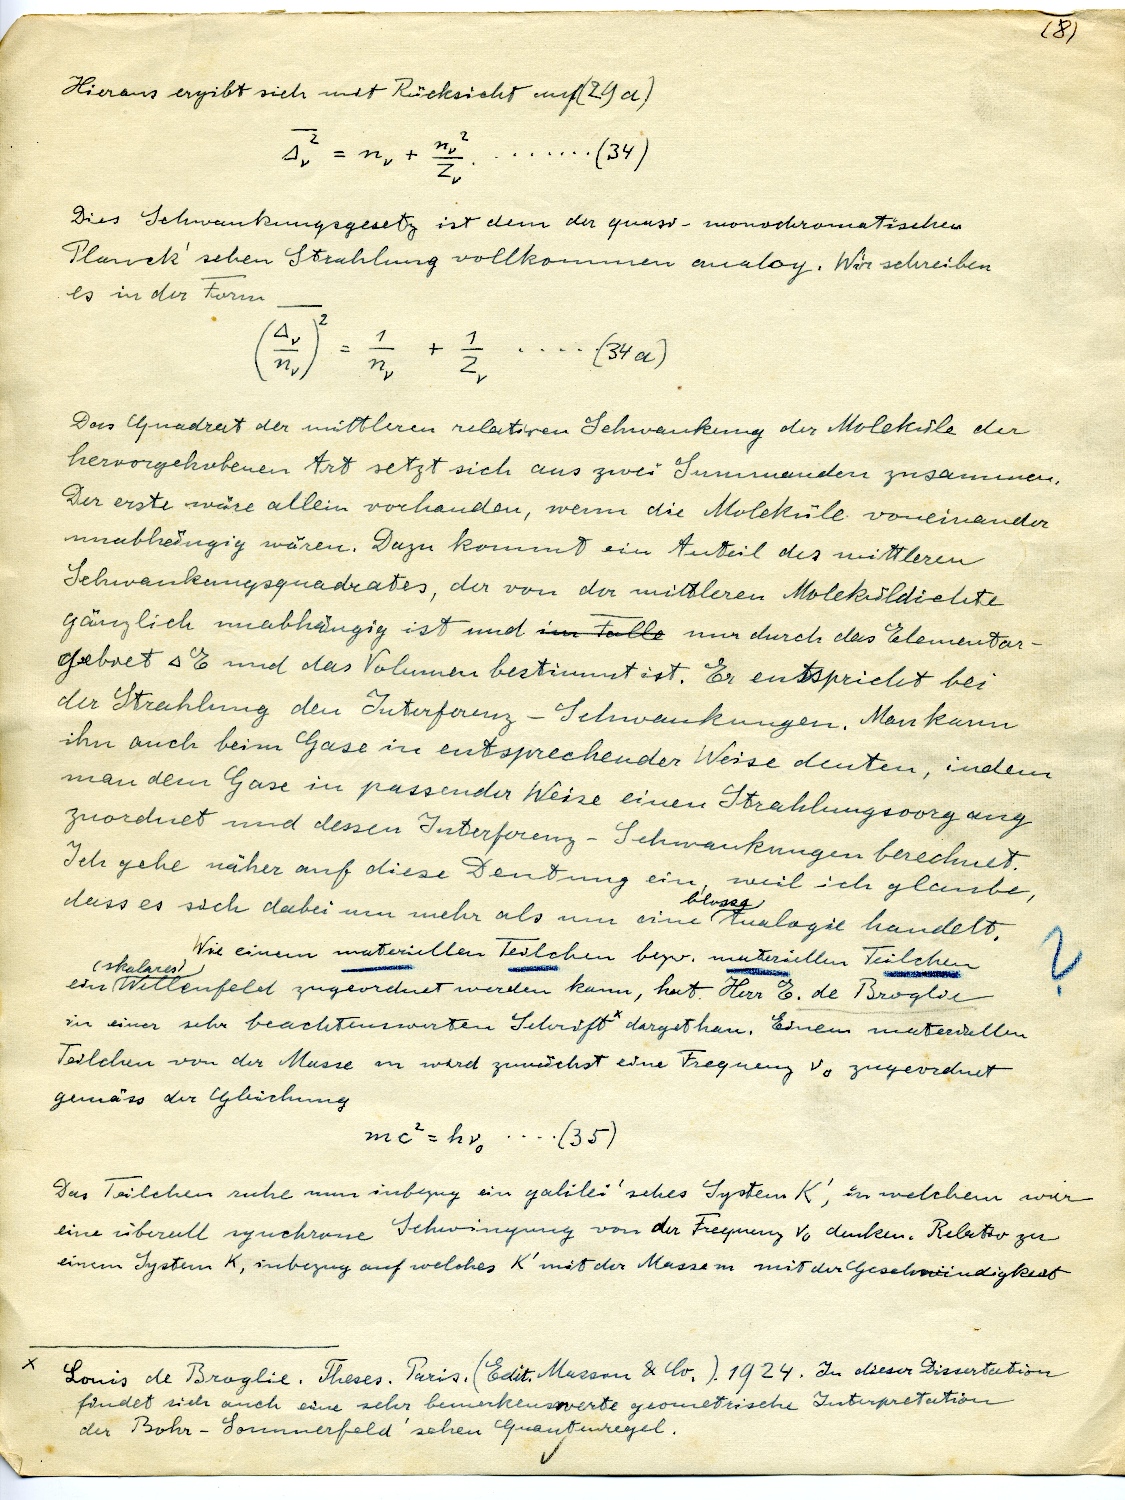 (8)
Hieraus ergibt sich mit Rücksicht auf (29a)
Δ̅ᵥ² = nᵥ + nᵥ²/Zᵥ . . . . . . . . (34)
Dies Schwankungsgesetz ist dem der quasi-monochromatischen
Planck'schen Strahlung vollkommen analog. Wir schreiben
es in der Form
(Δᵥ/nᵥ)² = 1/nᵥ + 1/Zᵥ . . . . . (34a)
Das Quadrat der mittleren relativen Schwankung der Moleküle der
hervorgehobenen Art setzt sich aus zwei Summanden zusammen.
Der erste wäre allein vorhanden, wenn die Moleküle voneinander
unabhängig wären. Dazu kommt ein Anteil des mittleren
Schwankungsquadrates, der von der mittleren Moleküldichte
gänzlich unabhängig ist und im Falle nur durch das Elementar-
gebiet ΔE und das Volumen bestimmt ist. Er entspricht bei
der Strahlung den Interferenz-Schwankungen. Man kann
ihn auch beim Gase in entsprechender Weise deuten, indem
man dem Gase in passender Weise einen Strahlungsvorgang
zuordnet und dessen Interferenz-Schwankungen berechnet.
Ich gehe näher auf diese Deutung ein, weil ich glaube,
dass es sich dabei um mehr als um eine blosse Analogie handelt.
Wie einem materiellen Teilchen bezw. materiellen Teilchen
ein (skalares) Wellenfeld zugeordnet werden kann, hat Herr E. de Broglie
in einer sehr beachtenswerten Schrift x dargethan. Einem materiellen
Teilchen von der Masse m wird zunächst eine Frequenz ν₀ zugeordnet
gemäss der Gleichung
mc² = hν₀ . . . . (35)
Das Teilchen ruhe nun inbezug ein galilei'sches System K', in welchem wir
eine überall synchrone Schwingung von der Frequenz ν₀ denken. Relativ zu
einem System K, inbezug auf welches K' mit der Masse m mit der Geschwindigkeit
x Louis de Broglie. Theses. Paris. (Edit. Musson & Co.). 1924. In dieser Dissertation
findet sich auch eine sehr bemerkenswerte geometrische Interpretation
der Bohr-Sommerfeld'schen Quantenregel.
?